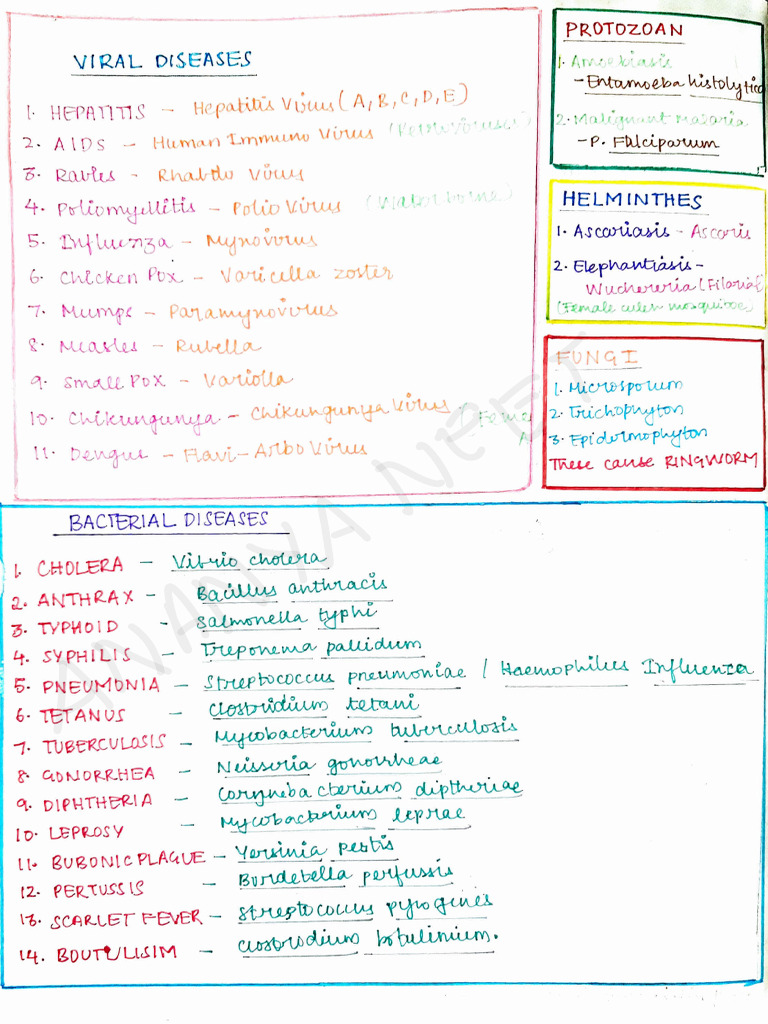 VIRAL DISEASES
1. HEPATITIS - Hepatitis Virus (A, B, C, D, E)
2. AIDS - Human Immuno Virus (Retroviruses)
3. Rabies - Rhabdo Virus
4. Poliomyellitis - Polio Virus (Water borne)
5. Influenza - Mynovirus
6. Chicken Pox - Varicella zoster
7. Mumps - Paramynovirus
8. Measles - Rubella
9. Small Pox - Variolla
10. Chikungunya - Chikungunya Virus
11. Dengue - Flavi-Arbo Virus
PROTOZOAN
1. Amoebiasis
- Entamoeba histolytica
2. Malignant malaria
- P. Falciparum
HELMINTHES
1. Ascariasis - Ascaris
2. Elephantiasis -
Wuchereria (Filarial)
(Female culex mosquitoe)
FUNGI
1. Microsporum
2. Trichophyton
3. Epidermophyton
These cause RINGWORM
BACTERIAL DISEASES
1. CHOLERA - Vibrio cholera
2. ANTHRAX - Bacillus anthracis
3. TYPHOID - Salmonella typhi
4. SYPHILIS - Treponema pallidum
5. PNEUMONIA - Streptococcus pneumoniae / Haemophilus Influenza
6. TETANUS - Clostridium tetani
7. TUBERCULOSIS - Mycobacterium tuberculosis
8. GONORRHEA - Neisseria gonorrheae
9. DIPHTHERIA - Corynebacterium diptheriae
10. LEPROSY - Mycobacterium leprae
11. BUBONIC PLAGUE - Yersinia pestis
12. PERTUSSIS - Bordetella perfussis
13. SCARLET FEVER - Streptococcus pyrogines
14. BOUTULISIM - Clostrodium botulinium.
ANANYA NEET